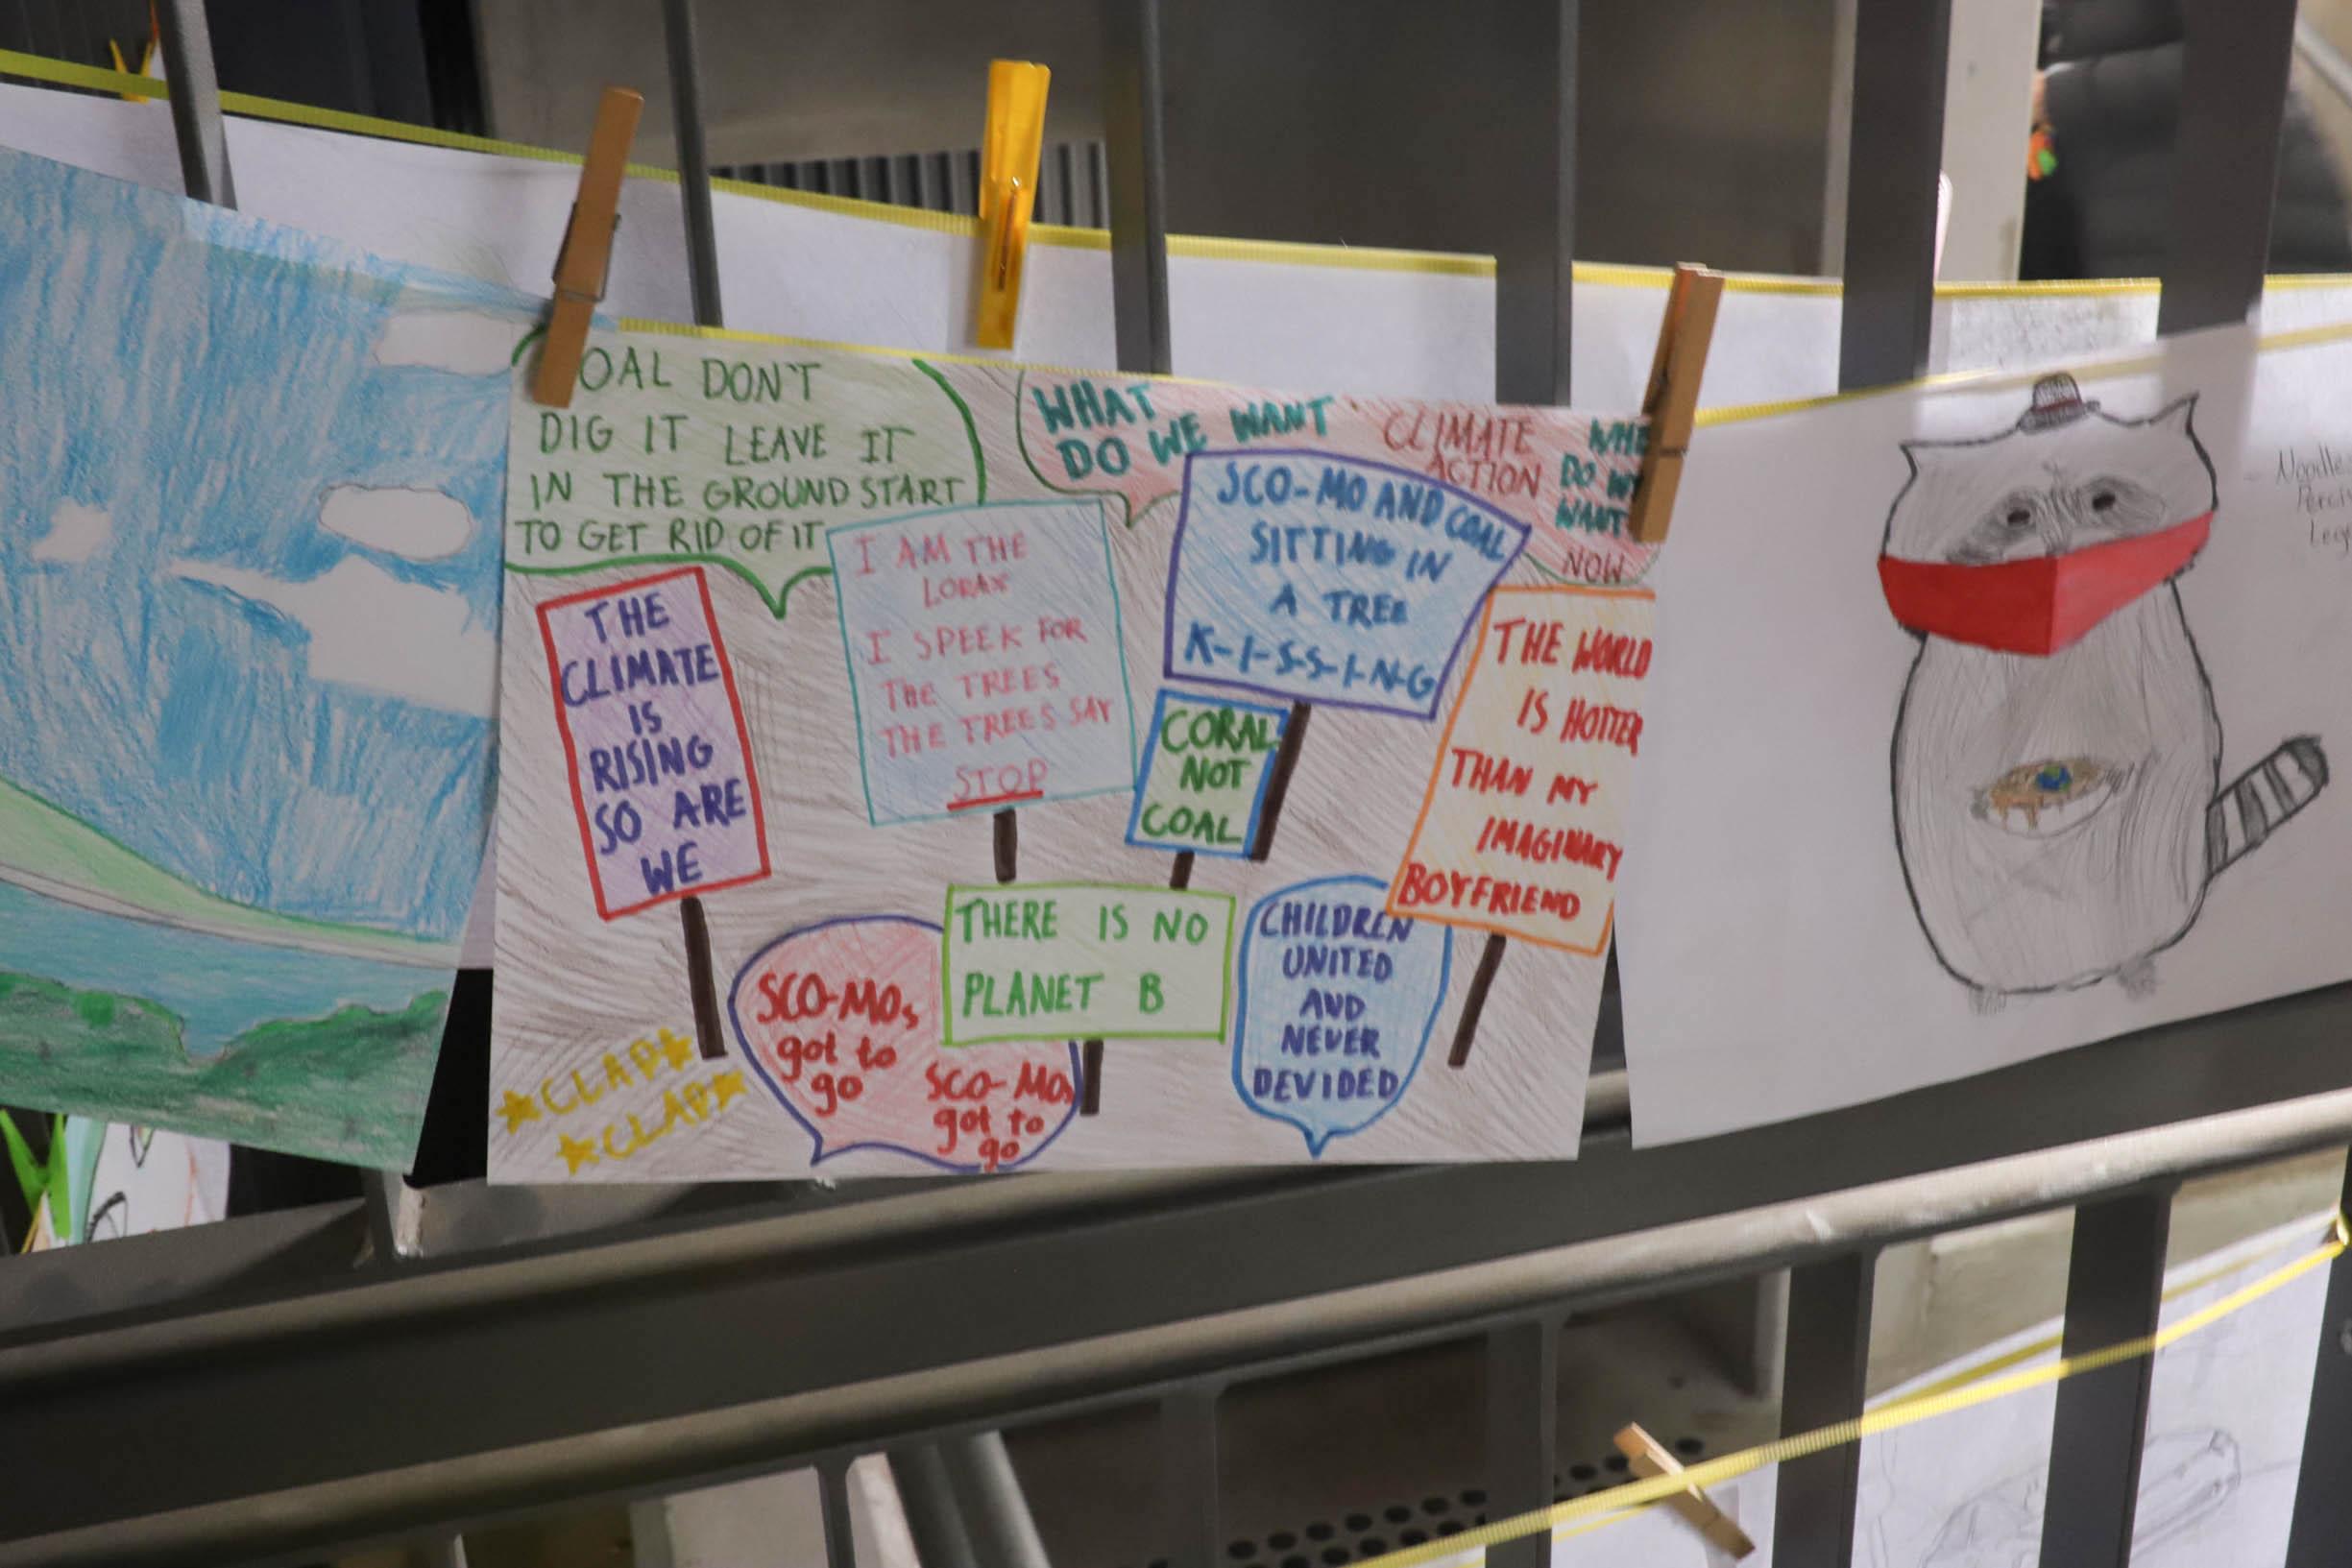 OAL DON'T
DIG IT LEAVE IT
IN THE GROUND START
TO GET RID OF IT
WHAT
DO WE WANT
CLIMATE
ACTION
WHE
DO W
WANT
NOW
THE
CLIMATE
IS
RISING
SO ARE
WE
I AM THE
LORAX
I SPEEK FOR
THE TREES
THE TREES SAY
STOP
SCO-MO AND COAL
SITTING IN
A TREE
K-I-S-S-I-N-G
CORAL
NOT
COAL
THE WORLD
IS HOTTER
THAN MY
IMAGINARY
BOYFRIEND
THERE IS NO
PLANET B
CHILDREN
UNITED
AND
NEVER
DEVIDED
SCO-MOs
got to
go
SCO-MOs
got to
go
CLAP
CLAP
Noodle